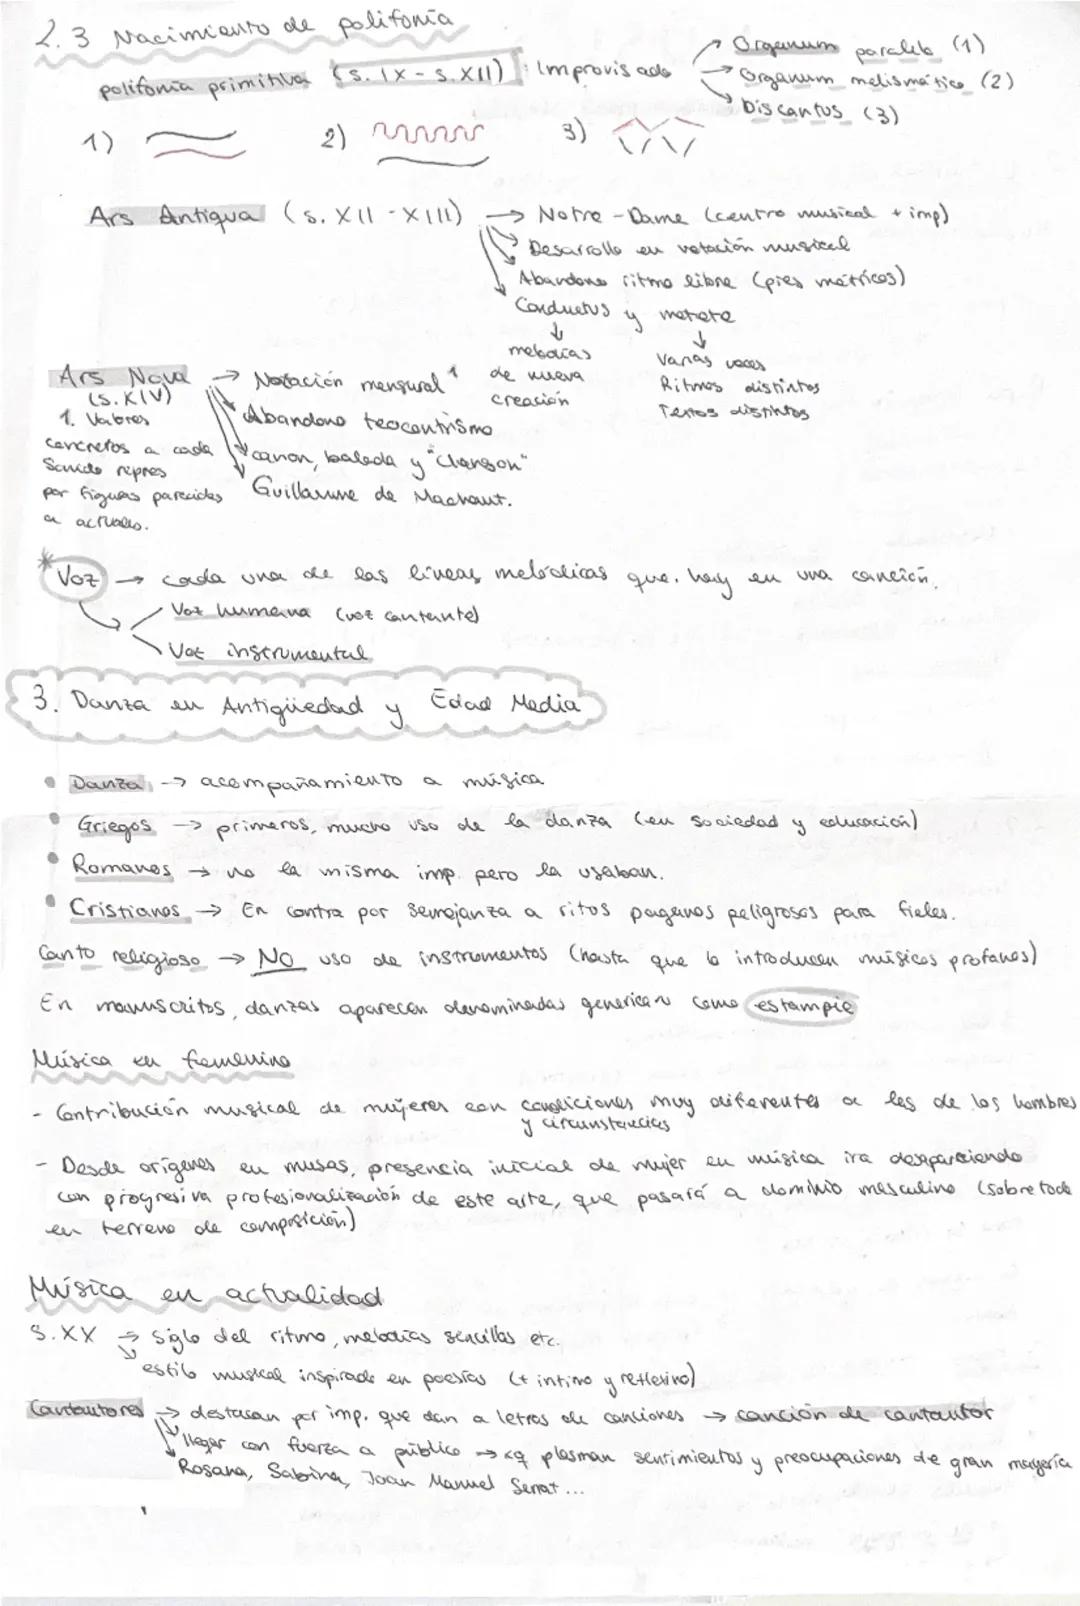 2.3 Nacimiento de polifonía
polifonía primitiva (s. IX - s. XII): Improvisado
→ Organum paralelo (1)
→ Organum melismático (2)
→ Discantus (3)
1) 2) 3)
Ars Antiqua (s. XII - XIII) → Notre-Dame (centro musical + imp)
Desarrollo en notación musical
Abandono ritmo libre (pies métricos)
Conductus y motete
↓ ↓
melodías de nueva creación
Varias voces
Ritmos distintos
Textos distintos
Ars Nova (s. XIV) → Notación mensural 1
Abandono teocentrismo
canon, balada y "Chanson"
Guillaume de Machaut.
1. Valores
concretos a cada
sonido repres
por figuras parecidas
a actuales.
* Voz → cada una de las líneas melódicas que hay en una canción.
Voz humana (voz cantante)
Voz instrumental
3. Danza en Antigüedad y Edad Media
• Danza → acompañamiento a música
• Griegos → primeros, mucho uso de la danza (en sociedad y educación)
• Romanos → no la misma imp. pero la usaban.
• Cristianos → En contra por semejanza a ritos paganos peligrosos para fieles.
Canto religioso → NO uso de instrumentos (hasta que lo introducen músicos profanos)
En manuscritos, danzas aparecen denominadas generica~ como estampie
Música en femenino
- Contribución musical de mujeres con condiciones muy diferentes a las de los hombres
y circunstancias
- Desde orígenes en musas, presencia inicial de mujer en música ira desapareciendo
con progresiva profesionalización de este arte, que pasará a dominio masculino (sobre todo
en terreno de composición)
Música en actualidad
S. XX → siglo del ritmo, melodías sencillas etc.
estilo musical inspirado en poesías (+ intimo y reflexivo)
Cantautores → destacan por imp. que dan a letras de canciones → canción de cantautor
llegar con fuerza a público → xq plasman sentimientos y preocupaciones de gran mayoría
Rosana, Sabina, Joan Manuel Serrat...